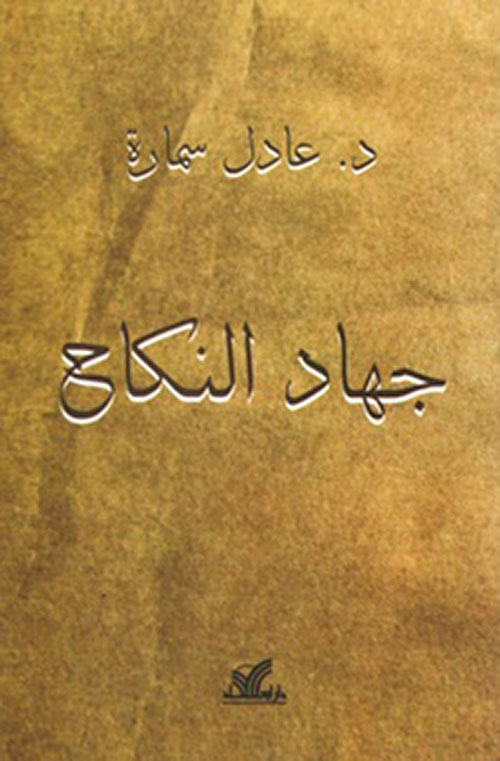 د. عادل سمارة
جهاد النكاح